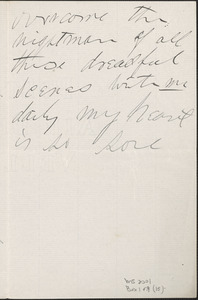 overcome the
nightmare of all
these dreadful
scenes with me
daily my heart
is so sore